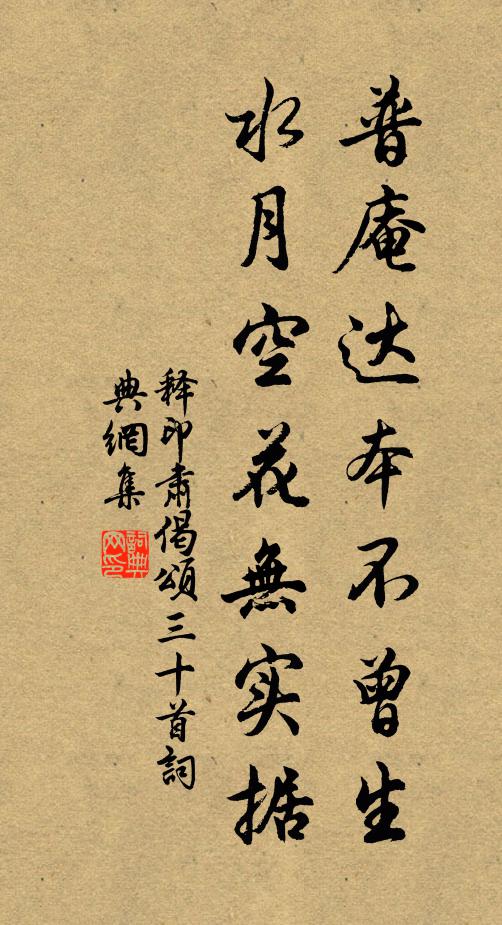 普庵达本不曾生
水月空花無实据
释印肃偈頌三十首詞
典網集
詞典
网印